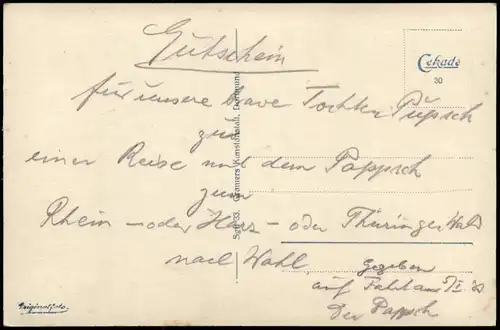 Gutschein
Cekade
30
für unsere brave Tochter Püpsch
zur
einer Reise mit dem Pappsch
zum
Rhein - oder Harz - oder Thüringer Wald
nach Wahl
gegeben
auf Fahrt am 5/I.
Der Papsch
Cramers Kunstanstalt, Dortmund
Originalfoto